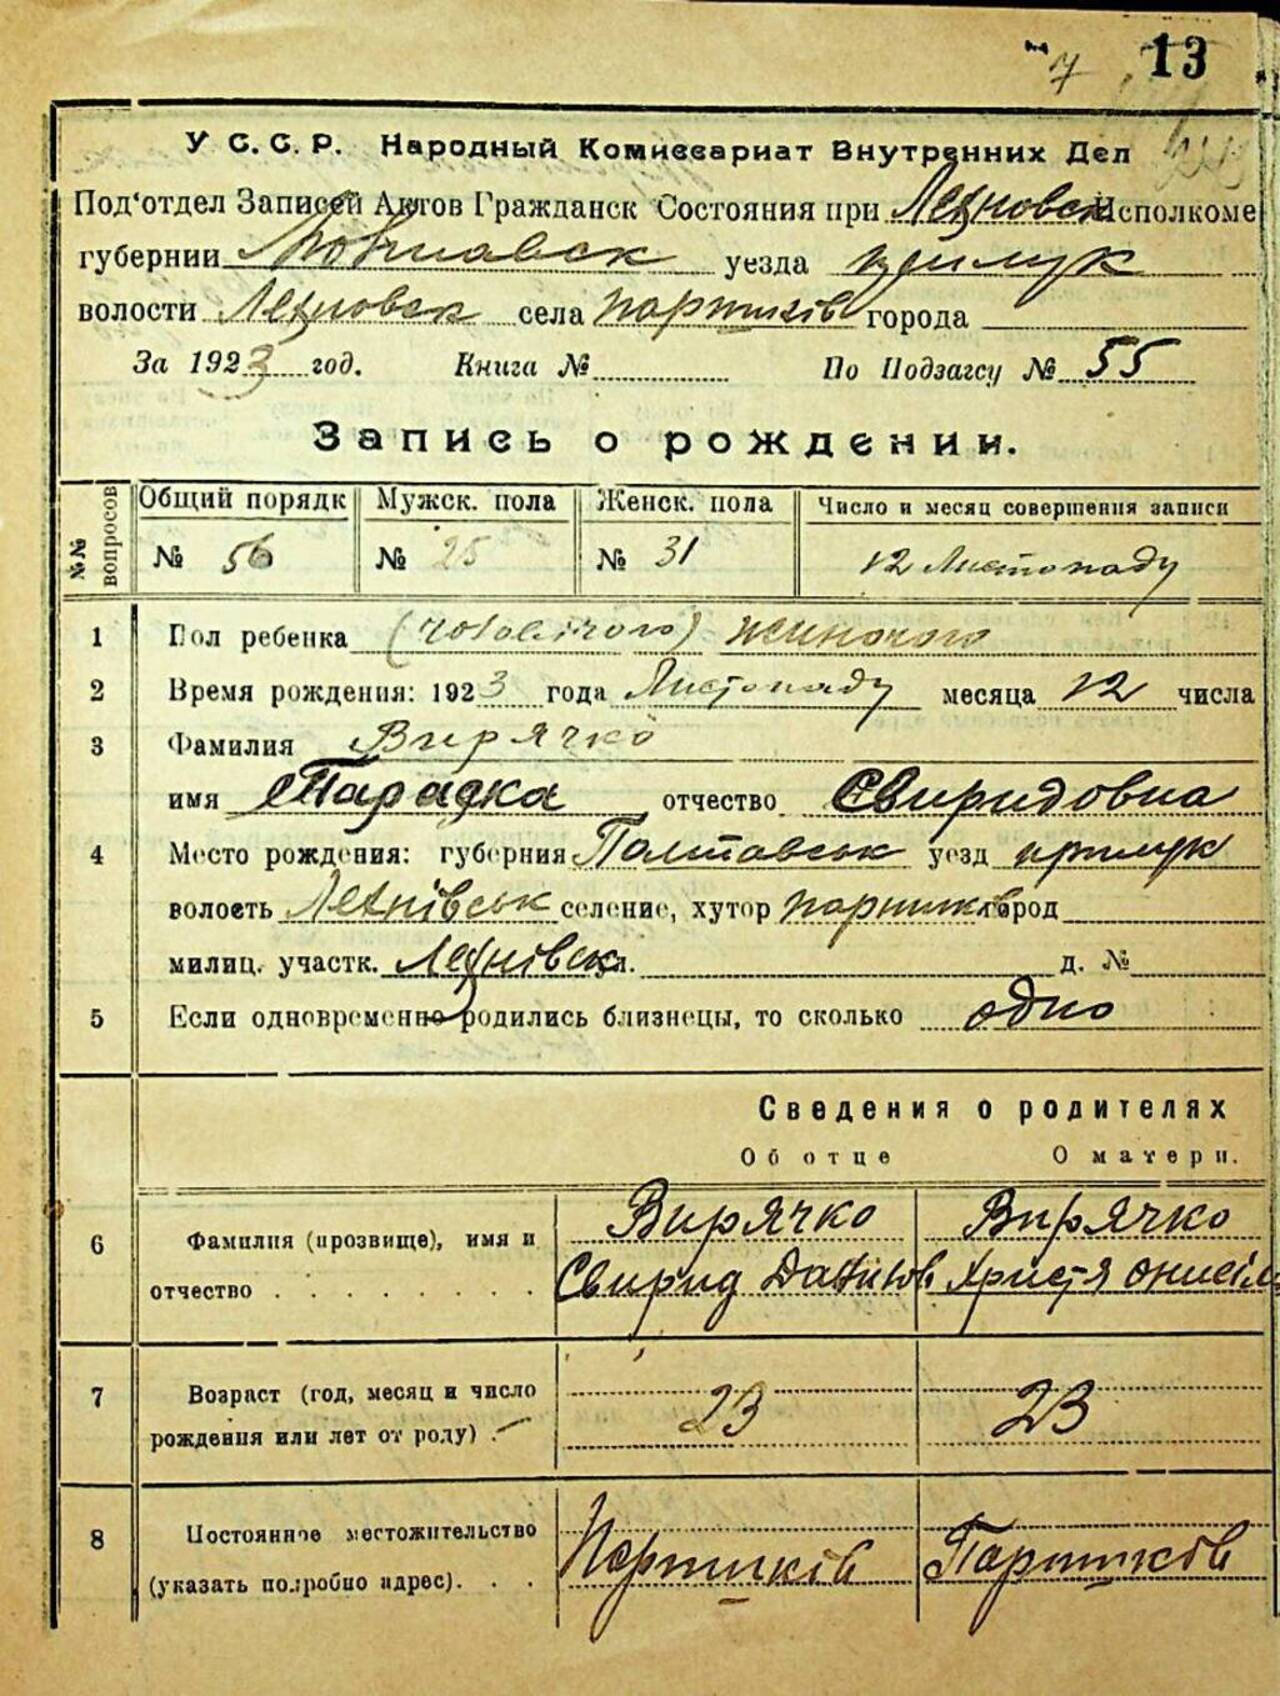 7 13
У С. С. Р. Народный Комиссариат Внутренних Дел
Под'отдел Записей Актов Гражданск Состояния при Исполкоме
губернии Полтавськ уезда прилук
волости села города
За 1923 год. Книга № По Подзагсу № 55
Запись о рождении.
№№ вопросов Общий порядк Мужск. пола Женск. пола Число и месяц совершения записи
№ 56 № 25 № 31 12 Листопаду
1 Пол ребенка жиночого
2 Время рождения: 1923 года Листопаду месяца 12 числа
3 Фамилия Вирячко
имя Парадка отчество Свиридовна
4 Место рождения: губерния Полтавськ уезд прилук
волость селение, хутор город
милиц. участк. л. д. №
5 Если одновременно родились близнецы, то сколько одно
Сведения о родителях
Об отце О матери.
6 Фамилия (прозвище), имя и Вирячко Вирячко
отчество . . . . . . . . Свирид Данилов Христя
7 Возраст (год, месяц и число
рождения или лет от роду) . 23 23
8 Постоянное местожительство
(указать подробно адрес). . .